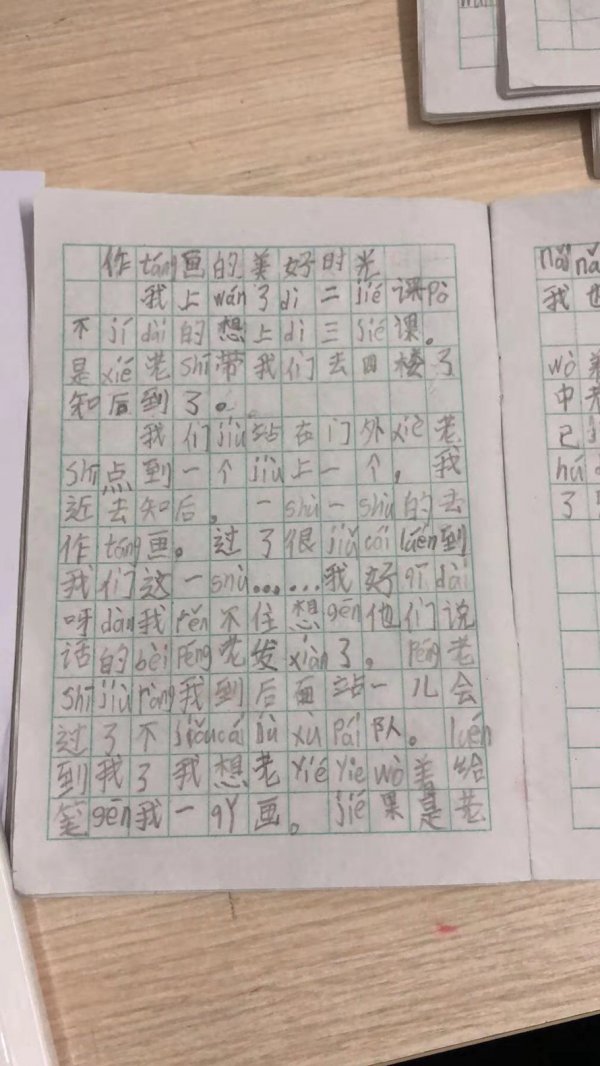 作táng画的美好时光
我上wán了dì二jié课Pò
不jí dài的想上dì三jié课。
是xiě老Shī带我们去四楼了
知后到了。
我们jiù站在门外xiě老
Shī点到一个jiù上一个，我
近去知后，一shù一shù的去
作táng画。过了很jiǔ cái luén到
我们这一shù……我好qī dài
呀dàn我rěn不住想gēn他们说
话的bèi Péng老发xiàn了。Péng老
Shī jiù ràng我到后面站一儿会
过了不jiǔ cái jì xù Pái队。luén
到我了我想老yié yie wò美给
笔gēn我一qǐ画。jié果是老
nǎi nǎ
我也
wò美
中老
已j
hú d
了